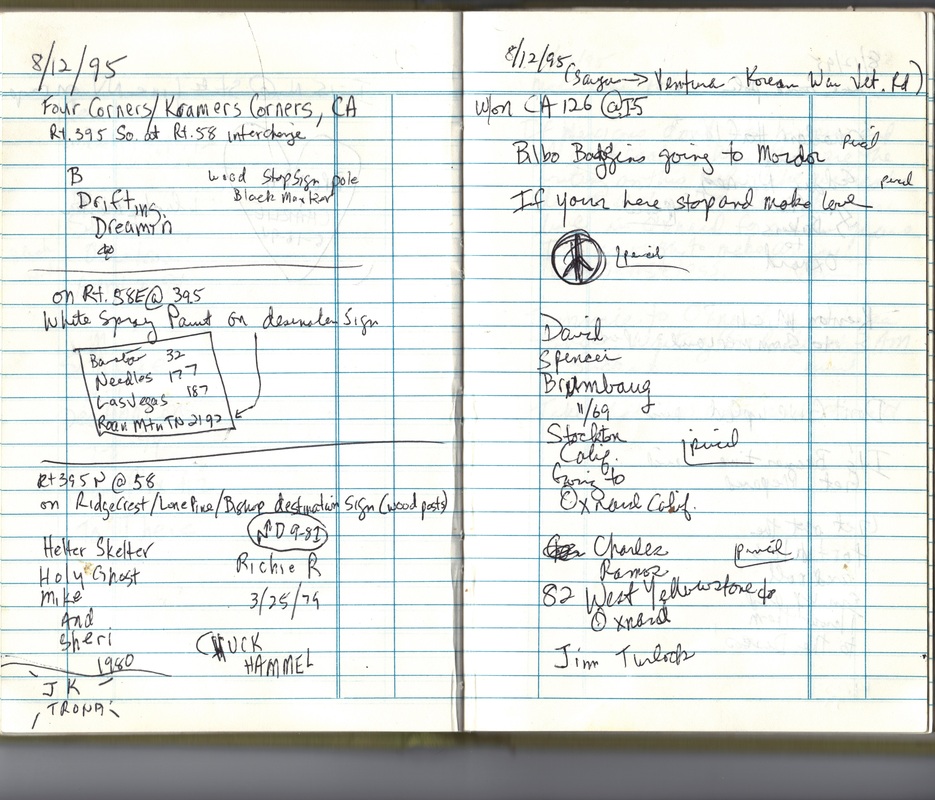 8/12/95
Four Corners/Kramers Corners, CA
Rt. 395 So. at Rt. 58 interchange
B
Drifting
Dreamin
wood Stop Sign pole
Black Marker
on Rt. 58E @ 395
White Spray Paint on destination Sign
Barstow 32
Needles 177
Las Vegas 187
Roan Mtn TN 2192
Rt 395 N @ 58
on Ridgecrest/Lone Pine/Bishop destination Sign (wood posts)
ND 9-81
Helter Skelter
Holy Ghost
Mike
And
Sheri
1980
Richie R
3/25/79
CHUCK
HAMMEL
JK
TRONA
8/12/95
(Saugus → Ventura - Korean War Vet. Rd)
W/on CA 126 @ I5
Bilbo Baggins going to Mordor pencil
If your here stop and make love pencil
pencil
David
Spencer
Brumbaug
11/69
Stockton
Calif.
Going to
Oxnard Calif.
pencil
Charles
Ramos
pencil
82 West Yellowstone
Oxnard
Jim Turlock